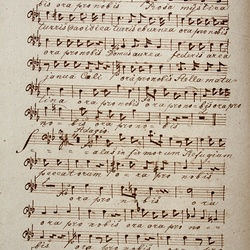 bis ora pro nobis Rosa mystica
turris Davidica turris eburnea ora pro
ora pro nobis Domus aurea foederis arca
janua Coeli ora pro nobis Stella matu
tina ora ora pro nobis ora pro
nobis ora pro nobis
Adagio
salus infirmorum Refugium
peccatorum ora pro nobis
ora pro nobis ora
ora pro nobis ora pro no-
bis ora pro nobis